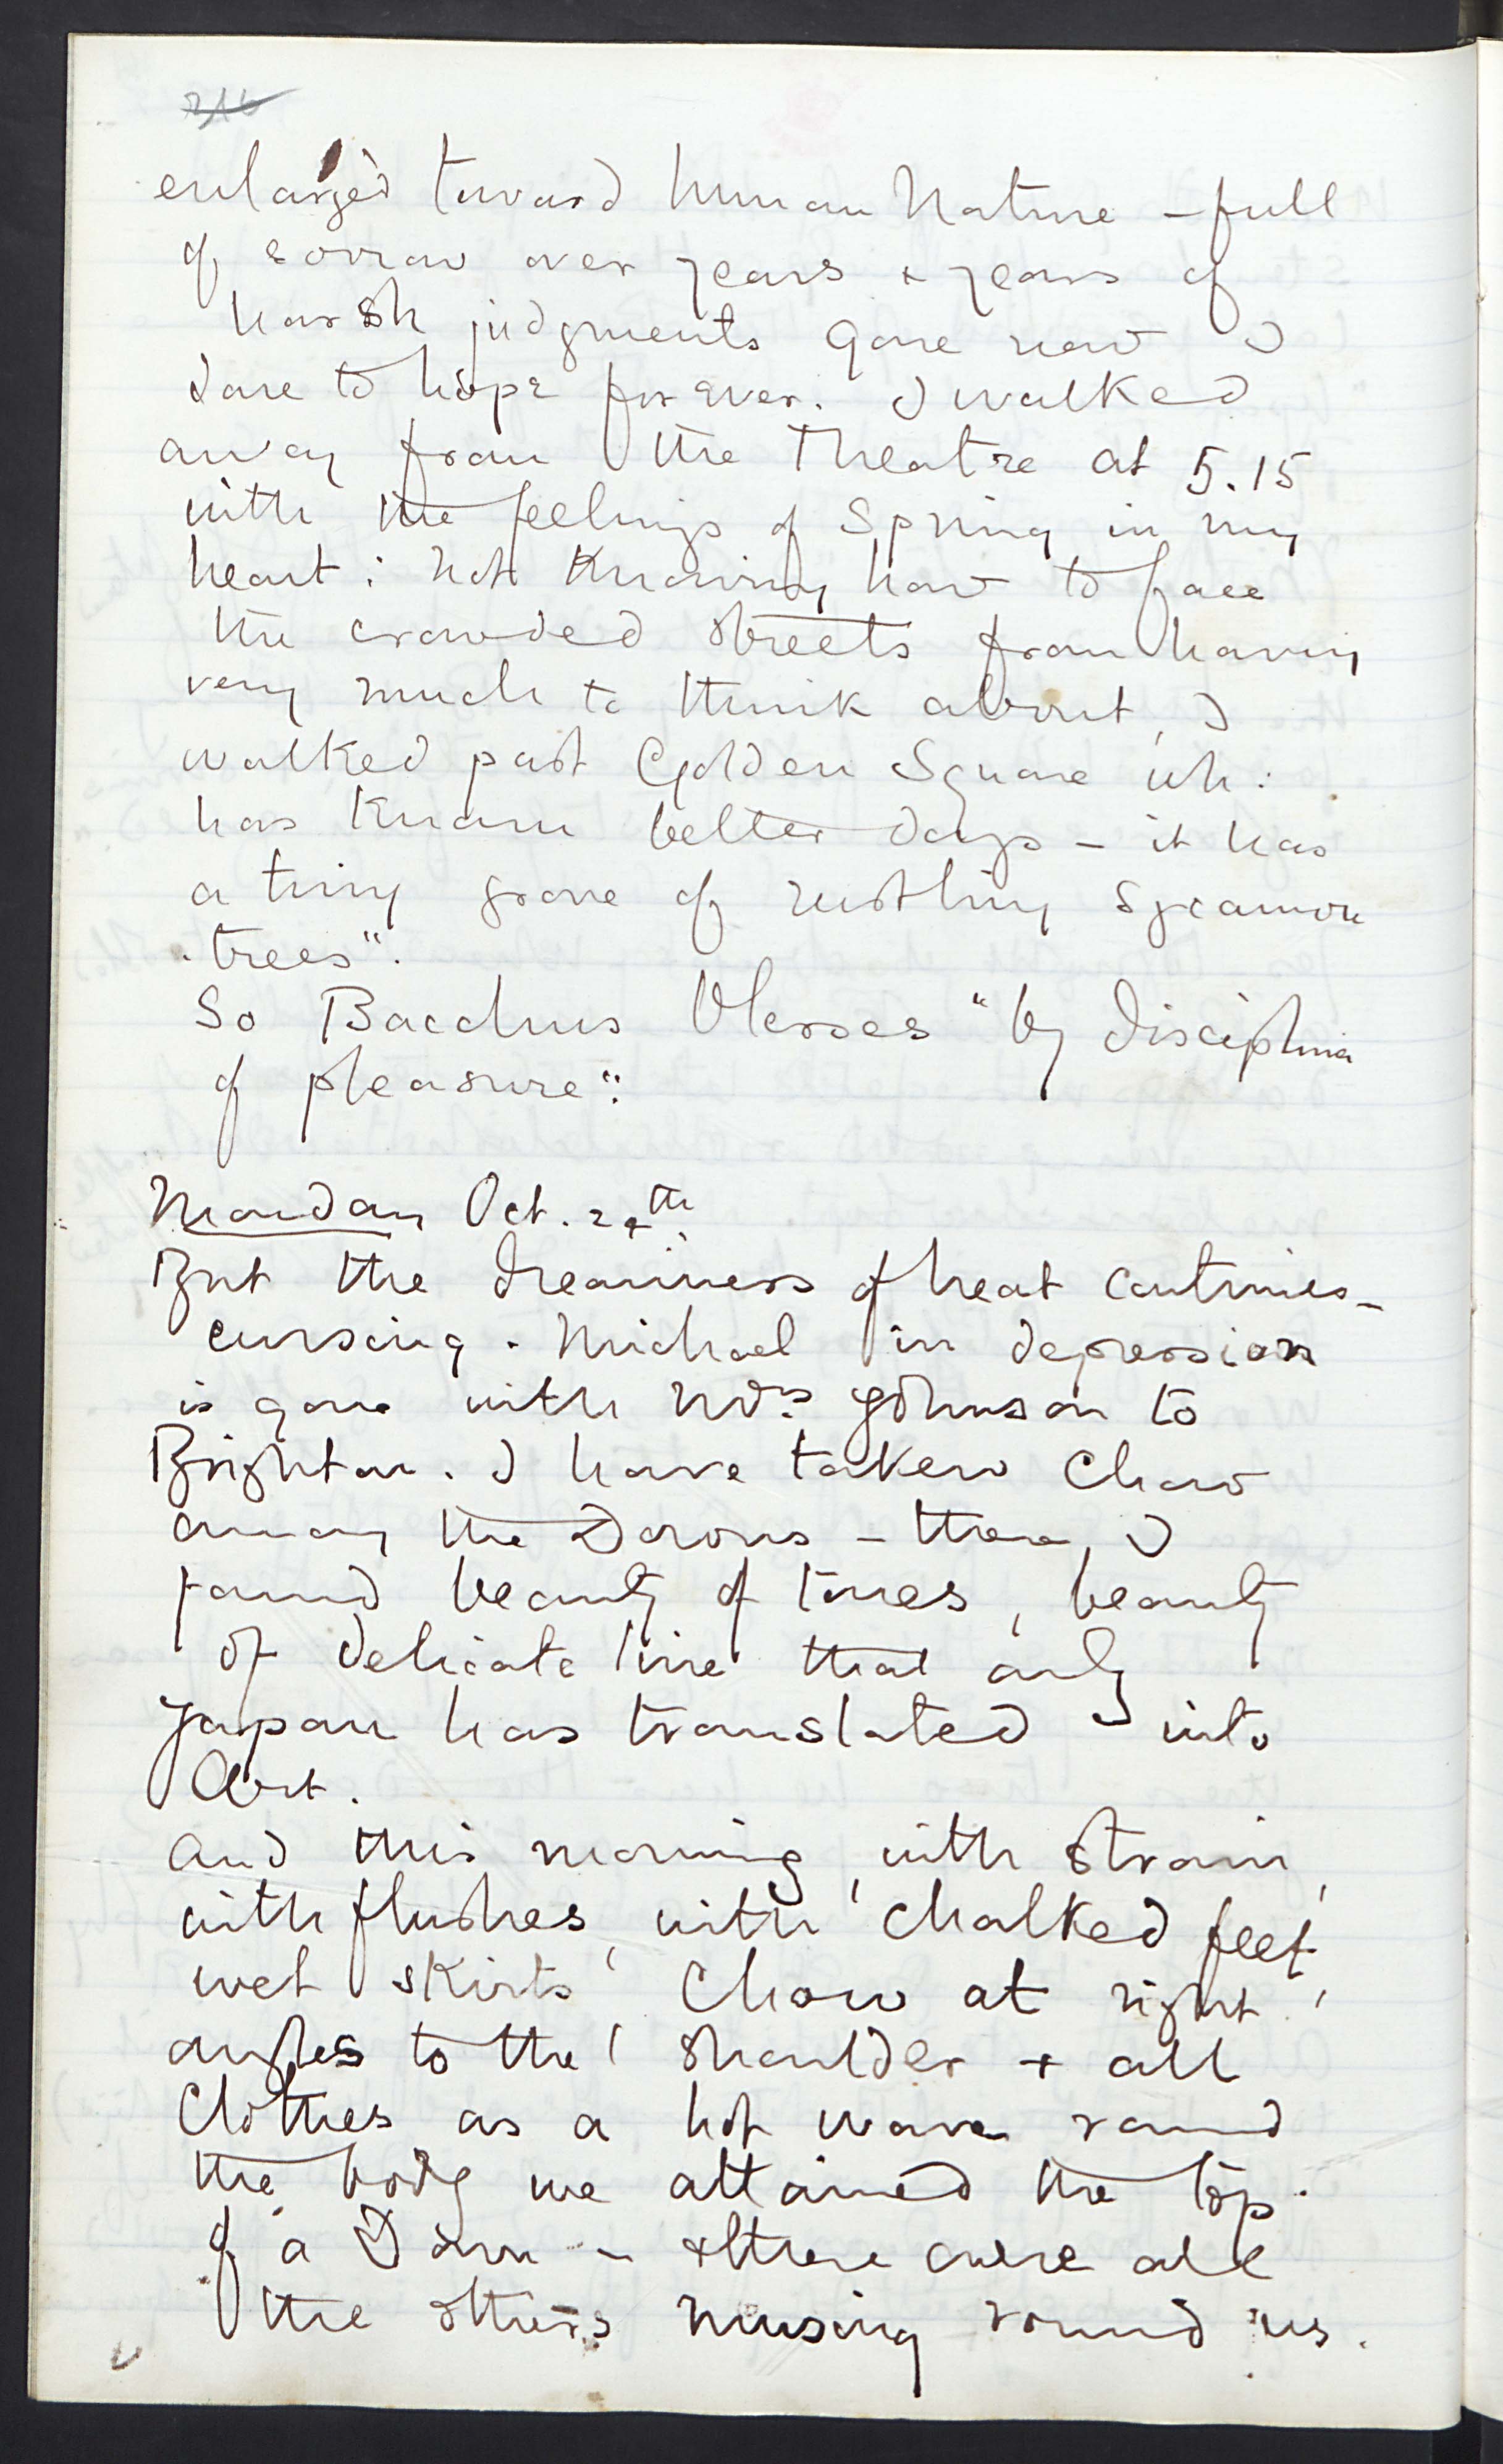 216
enlarged toward human Nature – full
of sorrow over years & years of
harsh judgments gone now I
dare to hope for ever. I walked
away from the Theatre at 5.15
with the feelings of Spring in my
heart: not Knowing how to face
the crowded streets from having
very much to think about, I
walked past Golden Square wh:
has Known better days – it has
a tiny grove of rustling sycamore
trees".
So Bacchus blesses "by discipline
of pleasure".
Monday Oct. th
But the dreariness of heat continues –
cursing. Michael in depression
is gone with Mrs Johnson to
Brighton. I have taken Chow
among the Downs – there, I
found beauty of tones, beauty
of delicate line that only
Japan has translated into
Art.
And this morning, with strain,
with flushes, with chalked feet,
wet skirts, Chow at right
angles to the shoulder & all
Clothes as a hot wave round
the body we attained the top
of a Down – & there were all
the others musing round us.